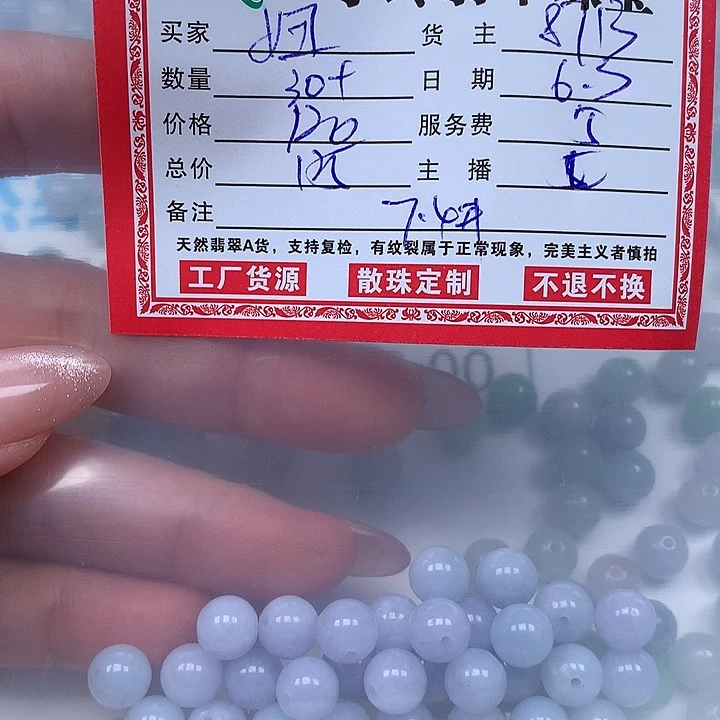 买家 货主 8713
数量 30+ 日期 6.5
价格 120 服务费
总价 主播
备注 7.4
天然翡翠A货，支持复检，有纹裂属于正常现象，完美主义者慎拍
工厂货源 散珠定制 不退不换